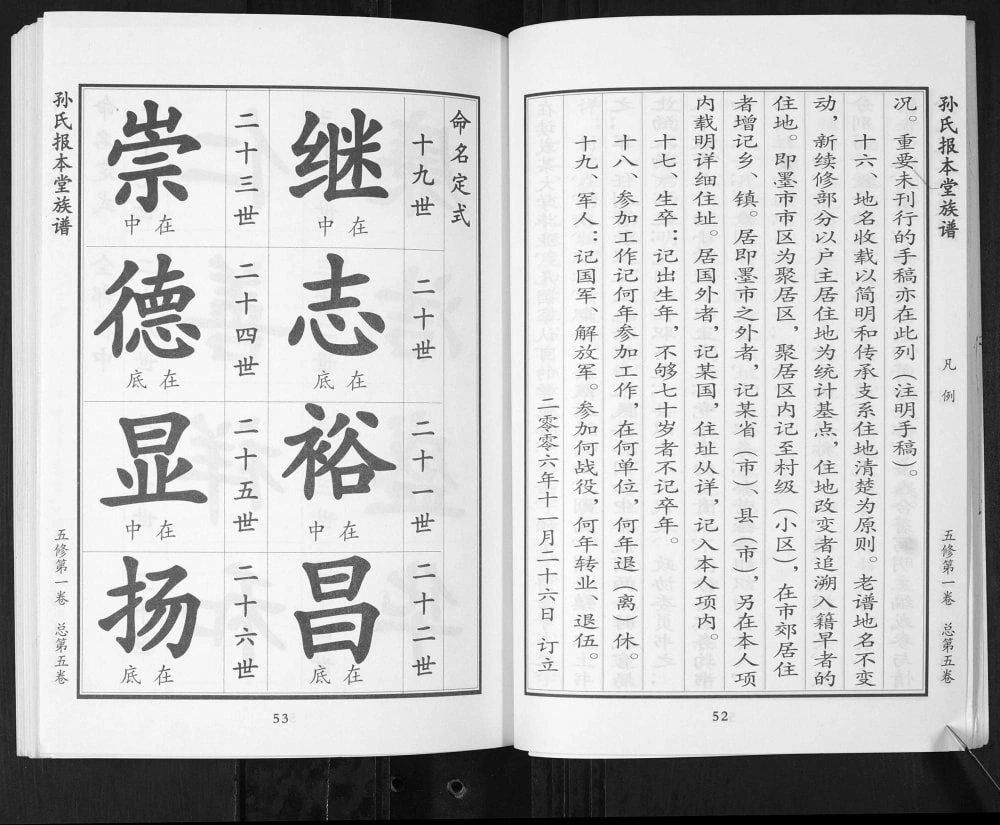 孙氏报本堂族谱
凡例
五修第一卷 总第五卷
况。重要未刊行的手稿亦在此列（注明手稿）。
十六、地名收载以简明和传承支系住地清楚为原则。老谱地名不变
动，新续修部分以户主居住地为统计基点，住地改变者追溯入籍早者的
住地。即墨市市区为聚居区，聚居区内记至村级（小区），在市郊居住
者增记乡、镇。居即墨市之外者，记某省（市）、县（市），另在本人项
内载明详细住址。居国外者，记某国，住址从详，记入本人项内。
十七、生卒：记出生年，不够七十岁者不记卒年。
十八、参加工作记何年参加工作，在何单位，何年退（离）休。
十九、军人：记国军、解放军。参加何战役，何年转业、退伍。
二零零六年十一月二十六日 订立
52
命名定式
十九世
继
在中
二十世
志
在底
二十一世
裕
在中
二十二世
昌
在底
二十三世
崇
在中
二十四世
德
在底
二十五世
显
在中
二十六世
扬
在底
孙氏报本堂族谱
五修第一卷 总第五卷
53